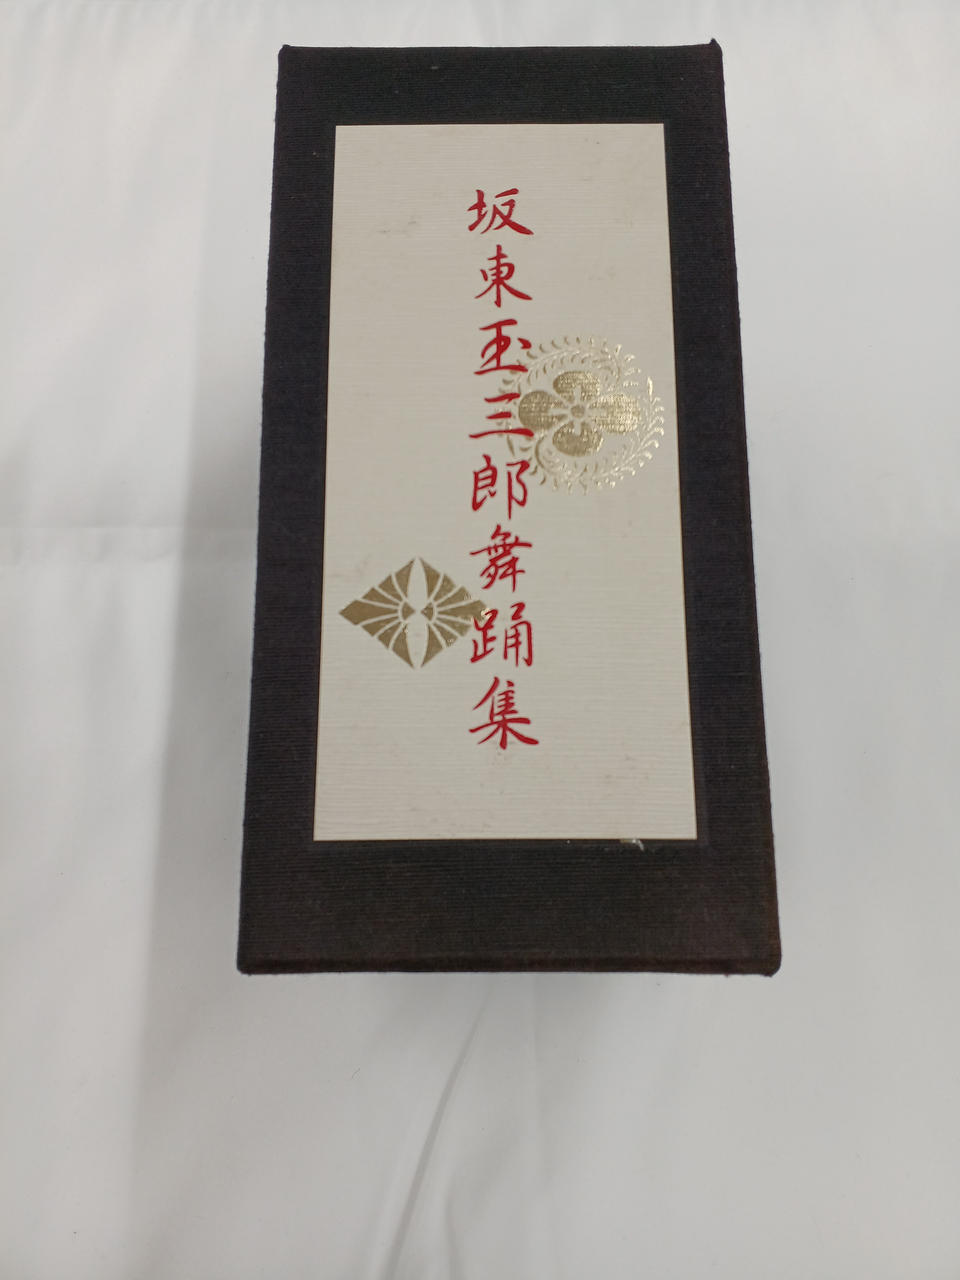 坂東玉三郎舞踊集